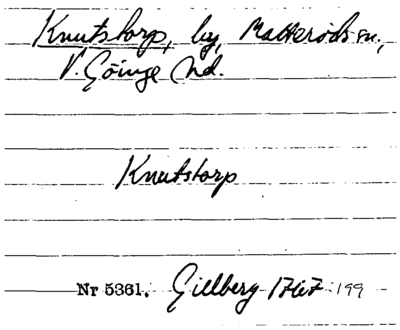 Knutstorp, by, Matteröds sn,
V. Göinge hd.
Knutstorp
Nr 5361. Gillberg 1767 199